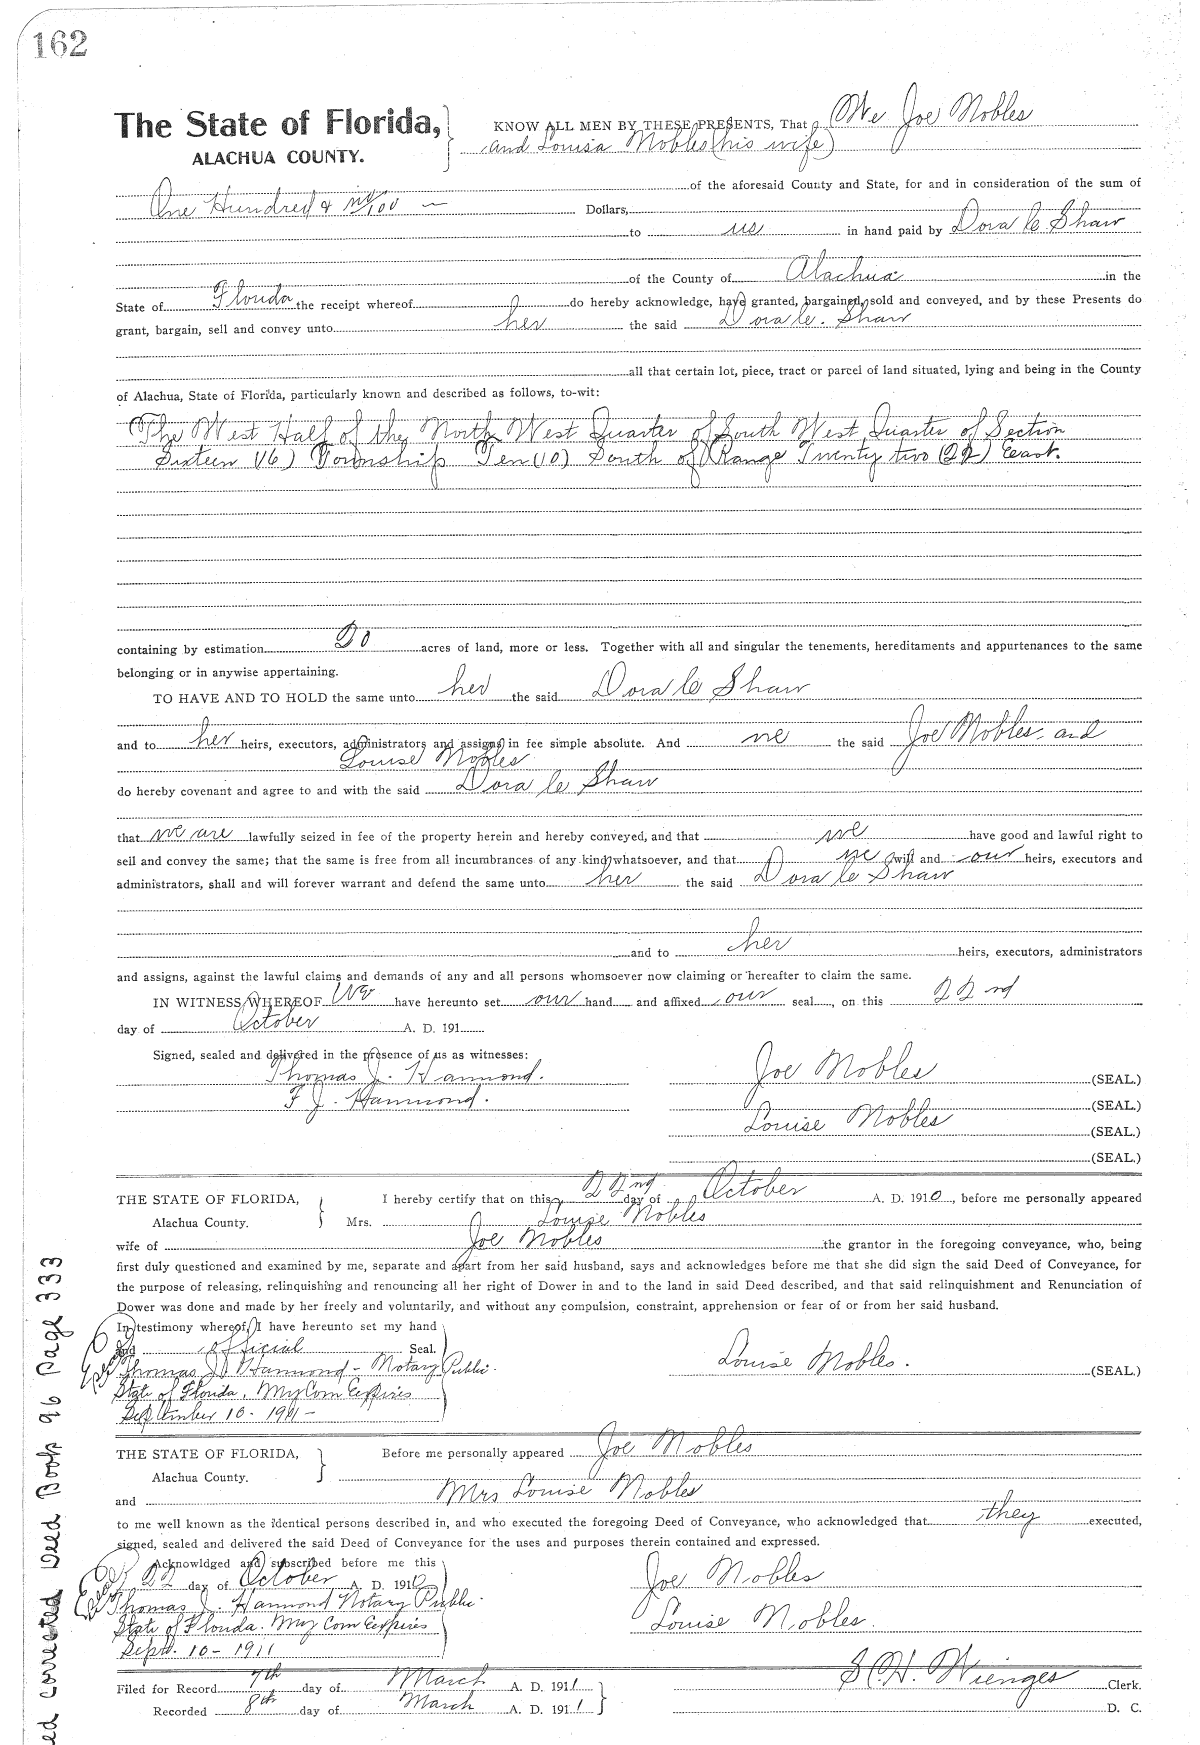 162
The State of Florida,
ALACHUA COUNTY.
KNOW ALL MEN BY THESE PRESENTS, That We Joe Nobles
and Louisa Nobles (his wife)
of the aforesaid County and State, for and in consideration of the sum of
One Hundred & no/100 — Dollars,
to us in hand paid by Dora C Shaw
of the County of Alachua in the
State of Florida the receipt whereof do hereby acknowledge, have granted, bargained, sold and conveyed, and by these Presents do
grant, bargain, sell and convey unto her the said Dora C. Shaw
all that certain lot, piece, tract or parcel of land situated, lying and being in the County
of Alachua, State of Florida, particularly known and described as follows, to-wit:
The West Half of the North West Quarter of South West Quarter of Section
Sixteen (16) Township Ten (10) South of Range Twenty two (22) East.
containing by estimation 20 acres of land, more or less. Together with all and singular the tenements, hereditaments and appurtenances to the same
belonging or in anywise appertaining.
TO HAVE AND TO HOLD the same unto her the said Dora C Shaw
and to her heirs, executors, administrators and assigns in fee simple absolute. And we the said Joe Nobles, and
Louise Nobles
do hereby covenant and agree to and with the said Dora C Shaw
that we are lawfully seized in fee of the property herein and hereby conveyed, and that we have good and lawful right to
sell and convey the same; that the same is free from all incumbrances of any kind whatsoever, and that we will and our heirs, executors and
administrators, shall and will forever warrant and defend the same unto her the said Dora C Shaw
and to her heirs, executors, administrators
and assigns, against the lawful claims and demands of any and all persons whomsoever now claiming or hereafter to claim the same.
IN WITNESS WHEREOF We have hereunto set our hand and affixed our seal, on this 22nd
day of October A. D. 191
Signed, sealed and delivered in the presence of us as witnesses:
Thomas J. Hammond.
F J. Hammond.
Joe Nobles (SEAL.)
(SEAL.)
Louise Nobles (SEAL.)
(SEAL.)
THE STATE OF FLORIDA,
Alachua County.
I hereby certify that on this 22nd day of October A. D. 1910, before me personally appeared
Mrs. Louise Nobles
wife of Joe Nobles the grantor in the foregoing conveyance, who, being
first duly questioned and examined by me, separate and apart from her said husband, says and acknowledges before me that she did sign the said Deed of Conveyance, for
the purpose of releasing, relinquishing and renouncing all her right of Dower in and to the land in said Deed described, and that said relinquishment and Renunciation of
Dower was done and made by her freely and voluntarily, and without any compulsion, constraint, apprehension or fear of or from her said husband.
In testimony whereof, I have hereunto set my hand
and official Seal.
Thomas J Hammond - Notary Public.
State of Florida, My Com Expires
September 10 - 1911 -
Louise Nobles. (SEAL)
THE STATE OF FLORIDA,
Alachua County.
Before me personally appeared Joe Nobles
and Mrs Louise Nobles
to me well known as the identical persons described in, and who executed the foregoing Deed of Conveyance, who acknowledged that they executed,
signed, sealed and delivered the said Deed of Conveyance for the uses and purposes therein contained and expressed.
Acknowldged and subscribed before me this
22 day of October A. D. 1910
Thomas J. Hammond Notary Public.
State of Florida. My Com Expires
Sept. 10 - 1911
Joe Nobles
Louise Nobles.
Filed for Record 7th day of March A. D. 1911
Recorded 8th day of March A. D. 1911
S. H. Wienges Clerk.
D. C.
ed corrected Deed Book 96 Page 333